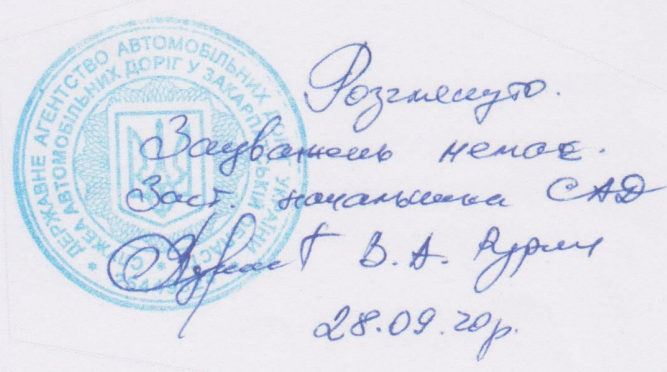 ДЕРЖАВНЕ АГЕНТСТВО АВТОМОБІЛЬНИХ ДОРІГ УКРАЇНИ
СЛУЖБА АВТОМОБІЛЬНИХ ДОРІГ У ЗАКАРПАТСЬКІЙ ОБЛАСТІ
Розглянуто.
Зауважень немає.
Заст. начальника САД
В. А.
28.09.20р.